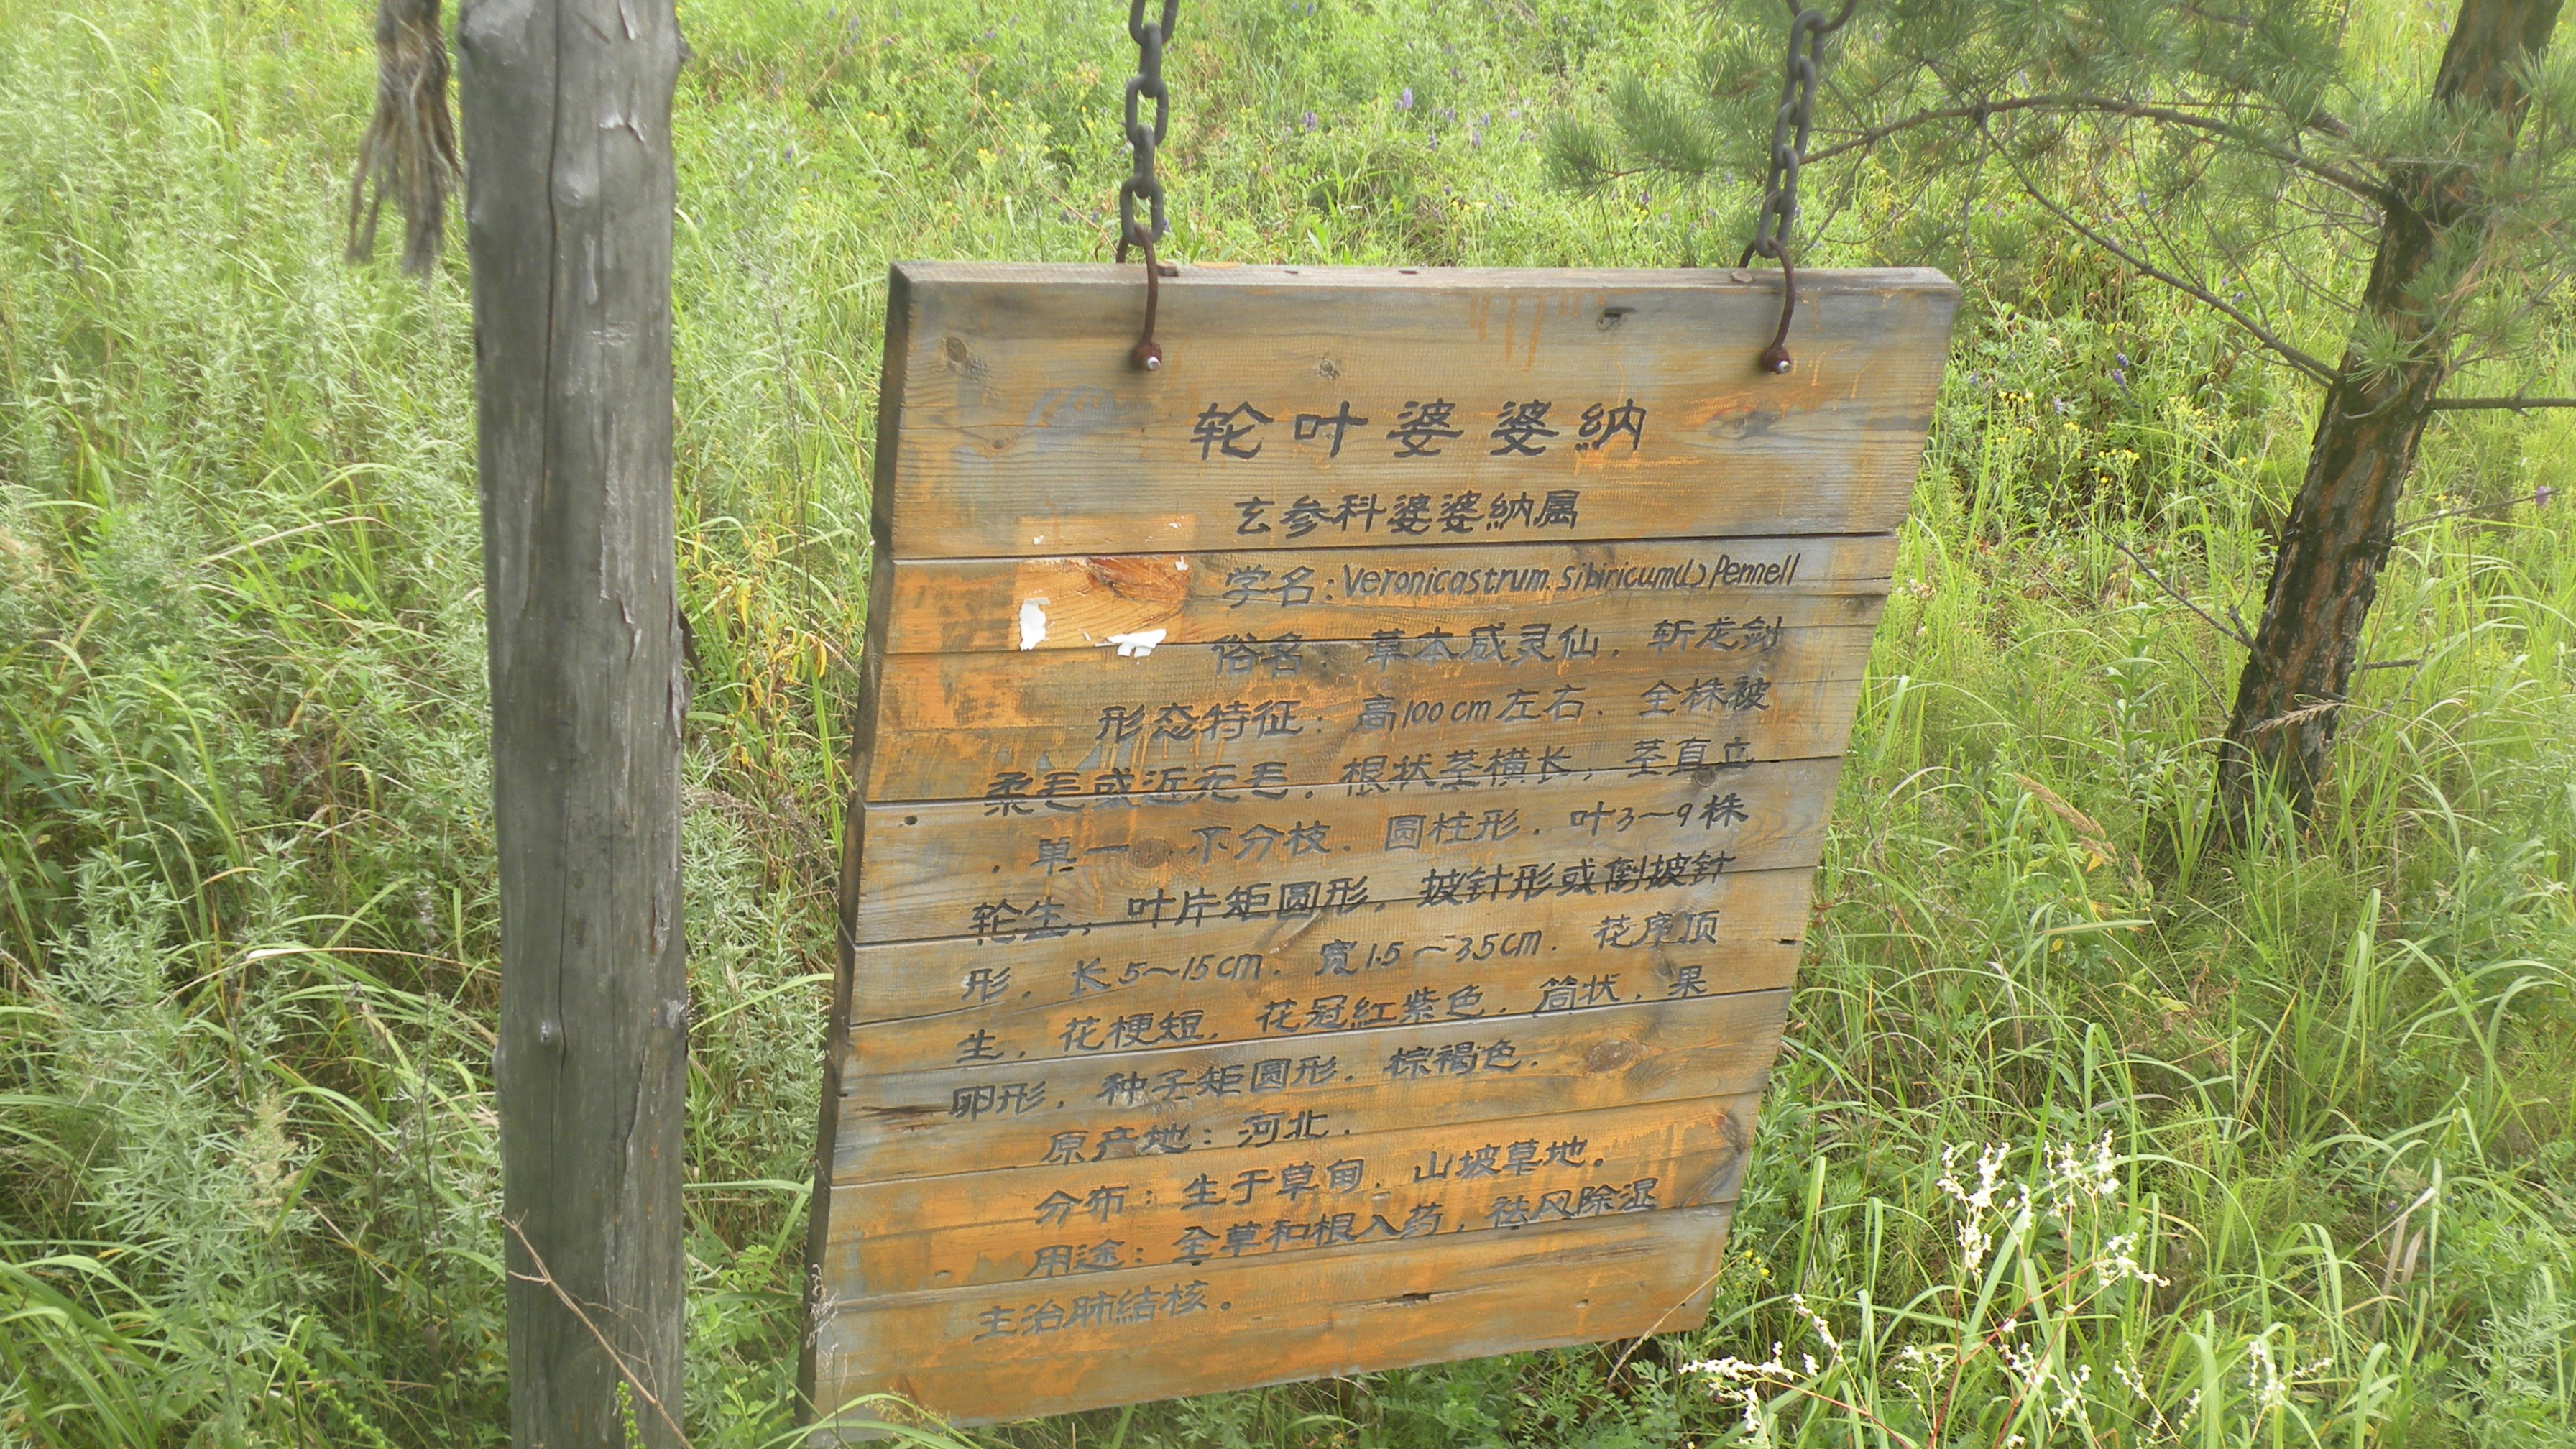 轮叶婆婆纳
玄参科婆婆纳属
学名:Veronicastrum.Sibiricum(L)Pennell
俗名:草本威灵仙.斩龙剑
形态特征:高100cm左右.全株被
柔毛或近无毛.根状茎横长,茎直立
.单一.不分枝.圆柱形.叶3~9株
轮生,叶片矩圆形,披针形或倒披针
形.长5~15cm.宽1.5~3.5cm.花序顶
生.花梗短,花冠红紫色.筒状.果
卵形.种子矩圆形.棕褐色.
原产地:河北.
分布:生于草甸.山坡草地。
用途:全草和根入药,祛风除湿,
主治肺结核。